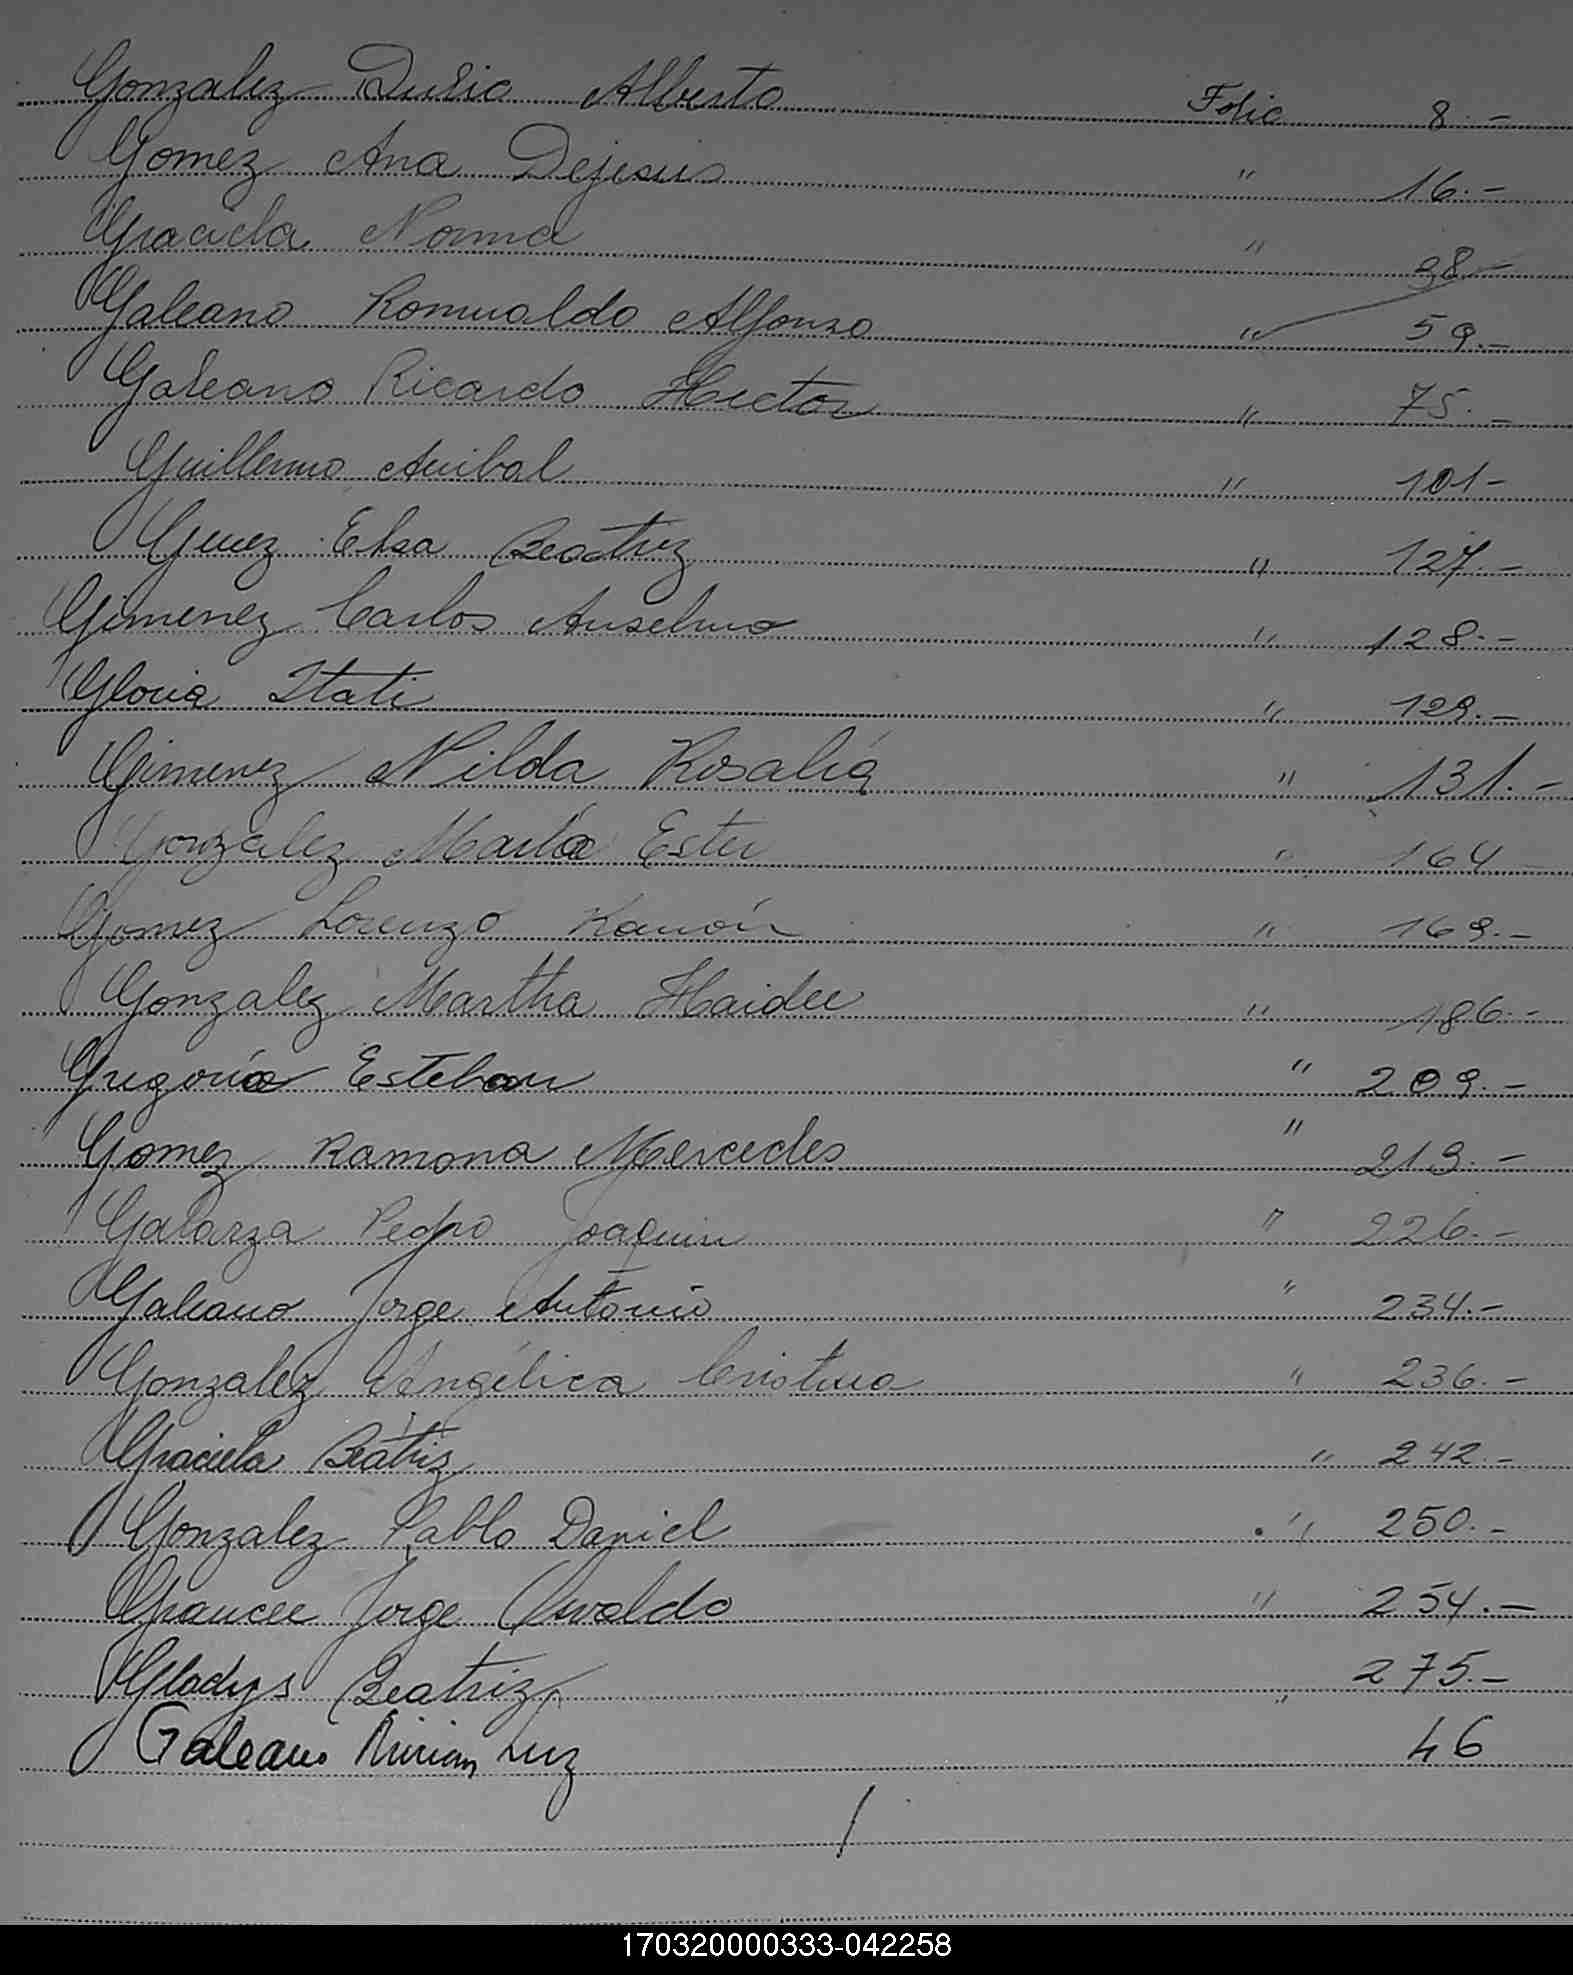 Gonzalez Alberto Folio 8.-
Gomez Ana Dejesus " 16.-
Graciela Norma " 38.-
Galeano Romualdo Alfonso " 59.-
Galeano Ricardo Hector " 75.-
Guillermo Anibal " 101-
Elsa Beatriz " 127.-
Gimenez Carlos Anselmo " 128.-
Gloria Itati " 129.-
Gimenez Nilda Rosalía " 131.-
Gonzalez María Ester " 164
Gomez Lorenzo Ramón " 169.-
Gonzalez Martha Haidee " 186.-
Gregorio Esteban " 209.-
Gomez Ramona Mercedes " 213.-
Galarza Pedro Joaquin " 226.-
Galeano Jorge Antonio " 234.-
Gonzalez Angélica Cristina " 236.-
Graciela Beatriz " 242.-
Gonzalez Pablo Daniel " 250.-
Jorge Osvaldo " 254.-
Gladys Beatriz " 275.-
Galeano Mirian Luz 46
170320000333-042258